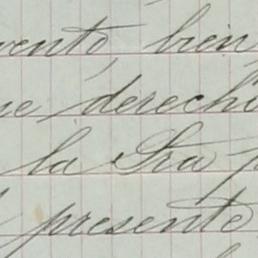 vento, bien
ue derecho
la Sra p
presente